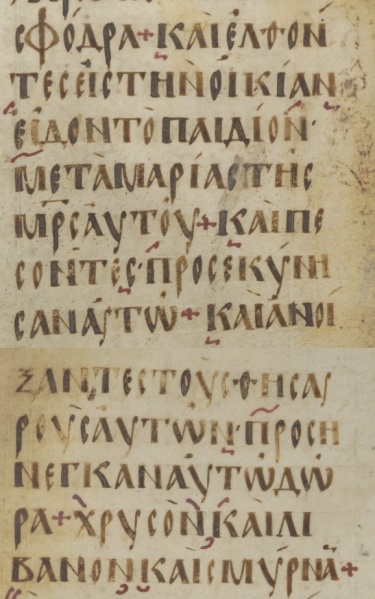 σφόδρα + καὶ ἐλθόν
τες εἰς τὴν οἰκίαν
εἶδον τὸ παιδίον·
μετὰ Μαρίας τῆς
μρς αὐτοῦ + καὶ πε
σόντες· προσεκύνη
σαν αὐτῷ + καὶ ἀνοί
ξαντες τοὺς θησαυ
ροὺς αὐτῶν· προσή
νεγκαν αὐτῷ δῶ
ρα + χρυσὸν καὶ λί
βανον καὶ σμύρναν +